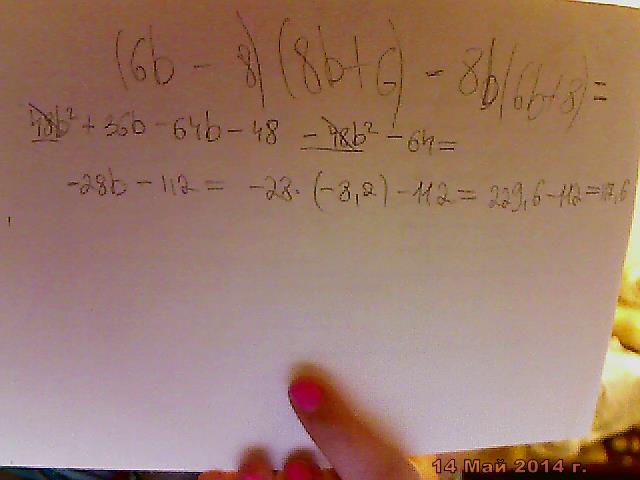 (6b - 8) (8b+6) - 8b(6b+8)=
48b² + 36b - 64b - 48 - 48b² - 64=
-28b - 112 = -28 · (-8,2) - 112 = 229,6-112=117,6
14 Май 2014 г.